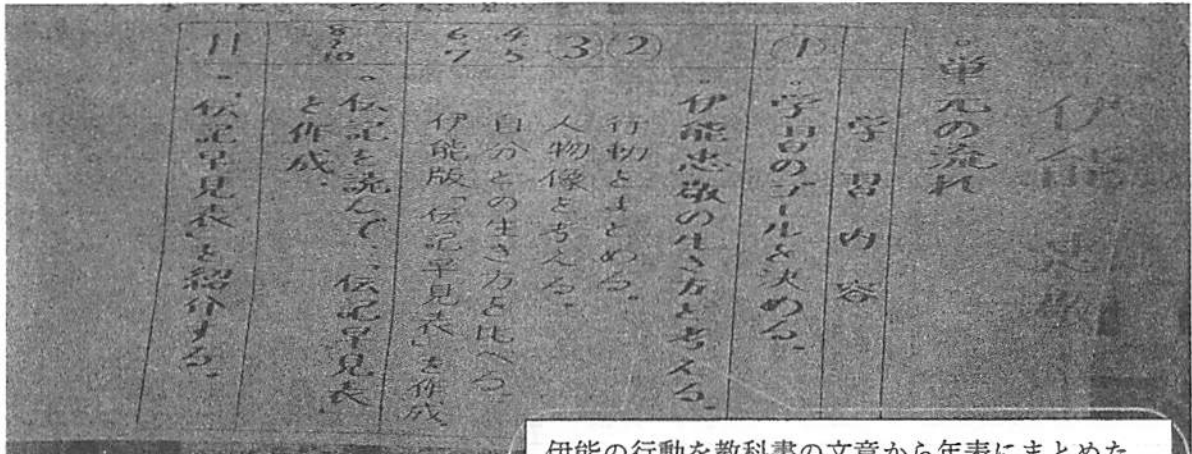 伊能忠敬
。単元の流れ
学習内容
① 。学習のゴールを決める。
。伊能忠敬の生き方を考える。
② 行動をまとめる。
③ 人物像を考える。
4・5 自分との生き方を比べる。
6・7 伊能版「伝記早見表」を作成。
8・9・10 。伝記を読んで、「伝記早見表」
を作成。
11 。「伝記早見表」を紹介する。
伊能の行動を教科書の文章から年表にまとめた